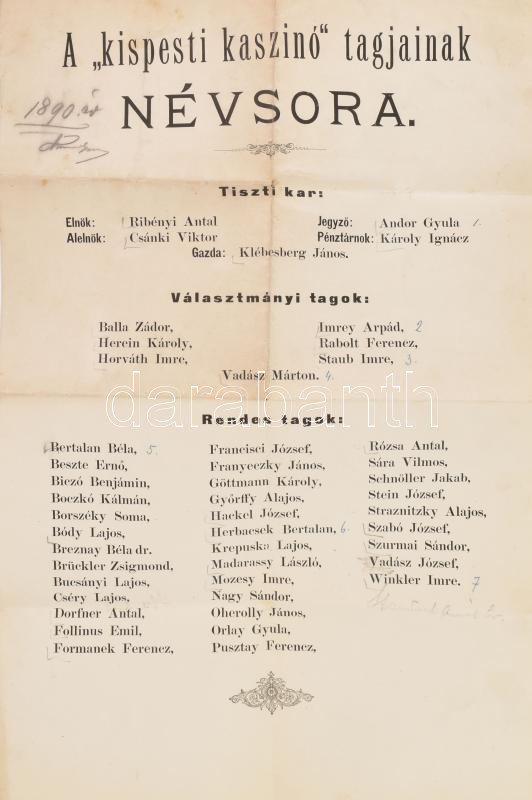 A „kispesti kaszinó“ tagjainak
1890. év
NÉVSORA.
Tiszti kar:
Elnök: Ribényi Antal
Jegyző: Andor Gyula 1.
Alelnök: Csánki Viktor
Pénztárnok: Károly Ignácz
Gazda: Klébesberg János.
Választmányi tagok:
Balla Zádor,
Herein Károly,
Horváth Imre,
Imrey Arpád, 2
Rabolt Ferencz,
Staub Imre, 3.
Vadász Márton. 4.
darabanth
Rendes tagok:
Bertalan Béla, 5.
Beszte Ernő,
Biczó Benjámin,
Boczkó Kálmán,
Borszéky Soma,
Bódy Lajos,
Breznay Béla dr.
Brückler Zsigmond,
Bucsányi Lajos,
Cséry Lajos,
Dorfner Antal,
Follinus Emil,
Formanek Ferencz,
Francisci József,
Franyeczky János,
Göttmann Károly,
Győrffy Alajos,
Hackel József,
Herbacsek Bertalan, 6.
Krepuska Lajos,
Madarassy László,
Mozesy Imre,
Nagy Sándor,
Oherolly János,
Orlay Gyula,
Pusztay Ferencz,
Rózsa Antal,
Sára Vilmos,
Schnöller Jakab,
Stein József,
Straznitzky Alajos,
Szabó József,
Szurmai Sándor,
Vadász József,
Winkler Imre. 7